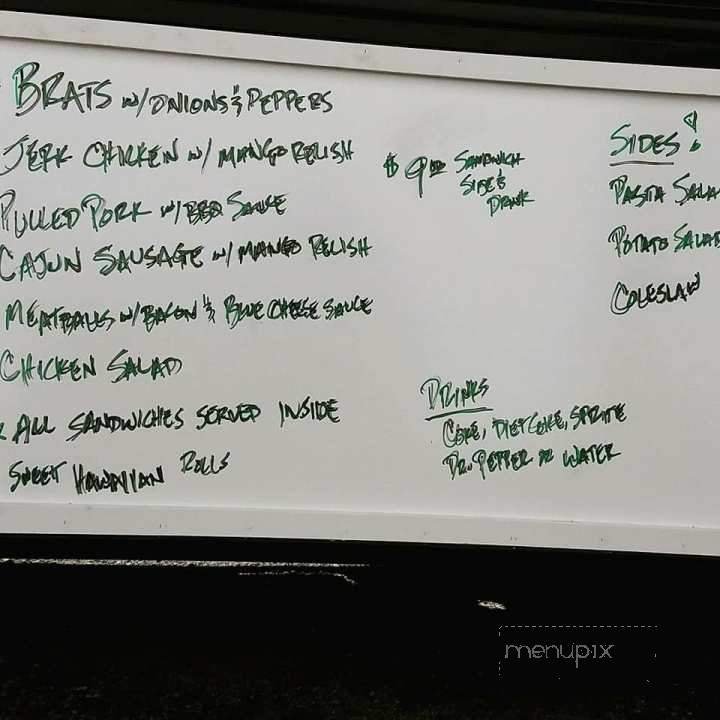 BRATS w/ONIONS & PEPPERS
JERK CHICKEN w/ MANGO RELISH
PULLED PORK w/BBQ SAUCE
CAJUN SAUSAGE w/ MANGO RELISH
MEATBALLS w/BACON & BLUE CHEESE SAUCE
CHICKEN SALAD
* ALL SANDWICHES SERVED INSIDE
SWEET HAWAIIAN ROLLS
$9.00 SANDWICH
SIDE &
DRINK
SIDES!
PASTA SALA
POTATO SALAD
COLESLAW
DRINKS
COKE, DIET COKE, SPRITE
DR. PEPPER or WATER
menupix